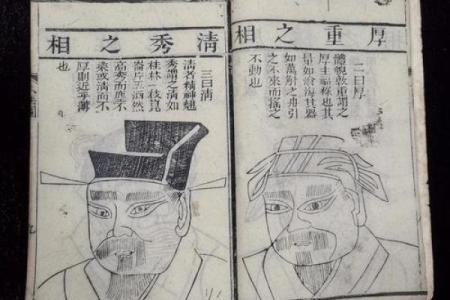 厚重之相
二曰厚
體貌敦重謂之
厚主福祿也其
量如滄海其器
如萬斛之舟引
之不來而搖之
不動也
淸秀之相
三曰淸
淸者精神翹
秀謂之淸如
桂林一枝崑
崙片玉洒然
高秀而塵不
染或淸而不
厚則近乎薄
也